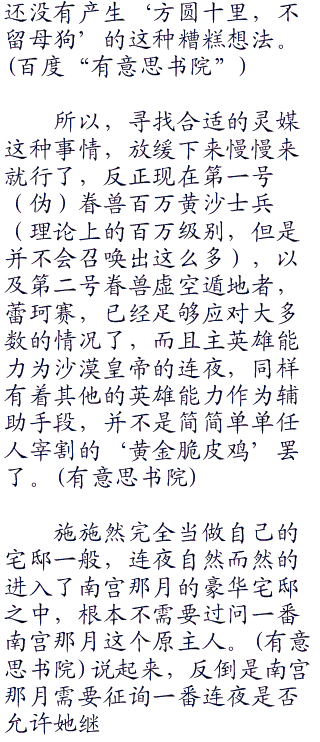 还没有产生‘方圆十里，不
留母狗’的这种糟糕想法。
(百度“有意思书院”)
所以，寻找合适的灵媒
这种事情，放缓下来慢慢来
就行了，反正现在第一号
（伪）眷兽百万黄沙士兵
（理论上的百万级别，但是
并不会召唤出这么多），以
及第二号眷兽虚空遁地者，
蕾珂赛，已经足够应对大多
数的情况了，而且主英雄能
力为沙漠皇帝的连夜，同样
有着其他的英雄能力作为辅
助手段，并不是简简单单任
人宰割的‘黄金脆皮鸡’罢
了。(有意思书院)
施施然完全当做自己的
宅邸一般，连夜自然而然的
进入了南宫那月的豪华宅邸
之中，根本不需要过问一番
南宫那月这个原主人。(有意
思书院)说起来，反倒是南宫
那月需要征询一番连夜是否
允许她继